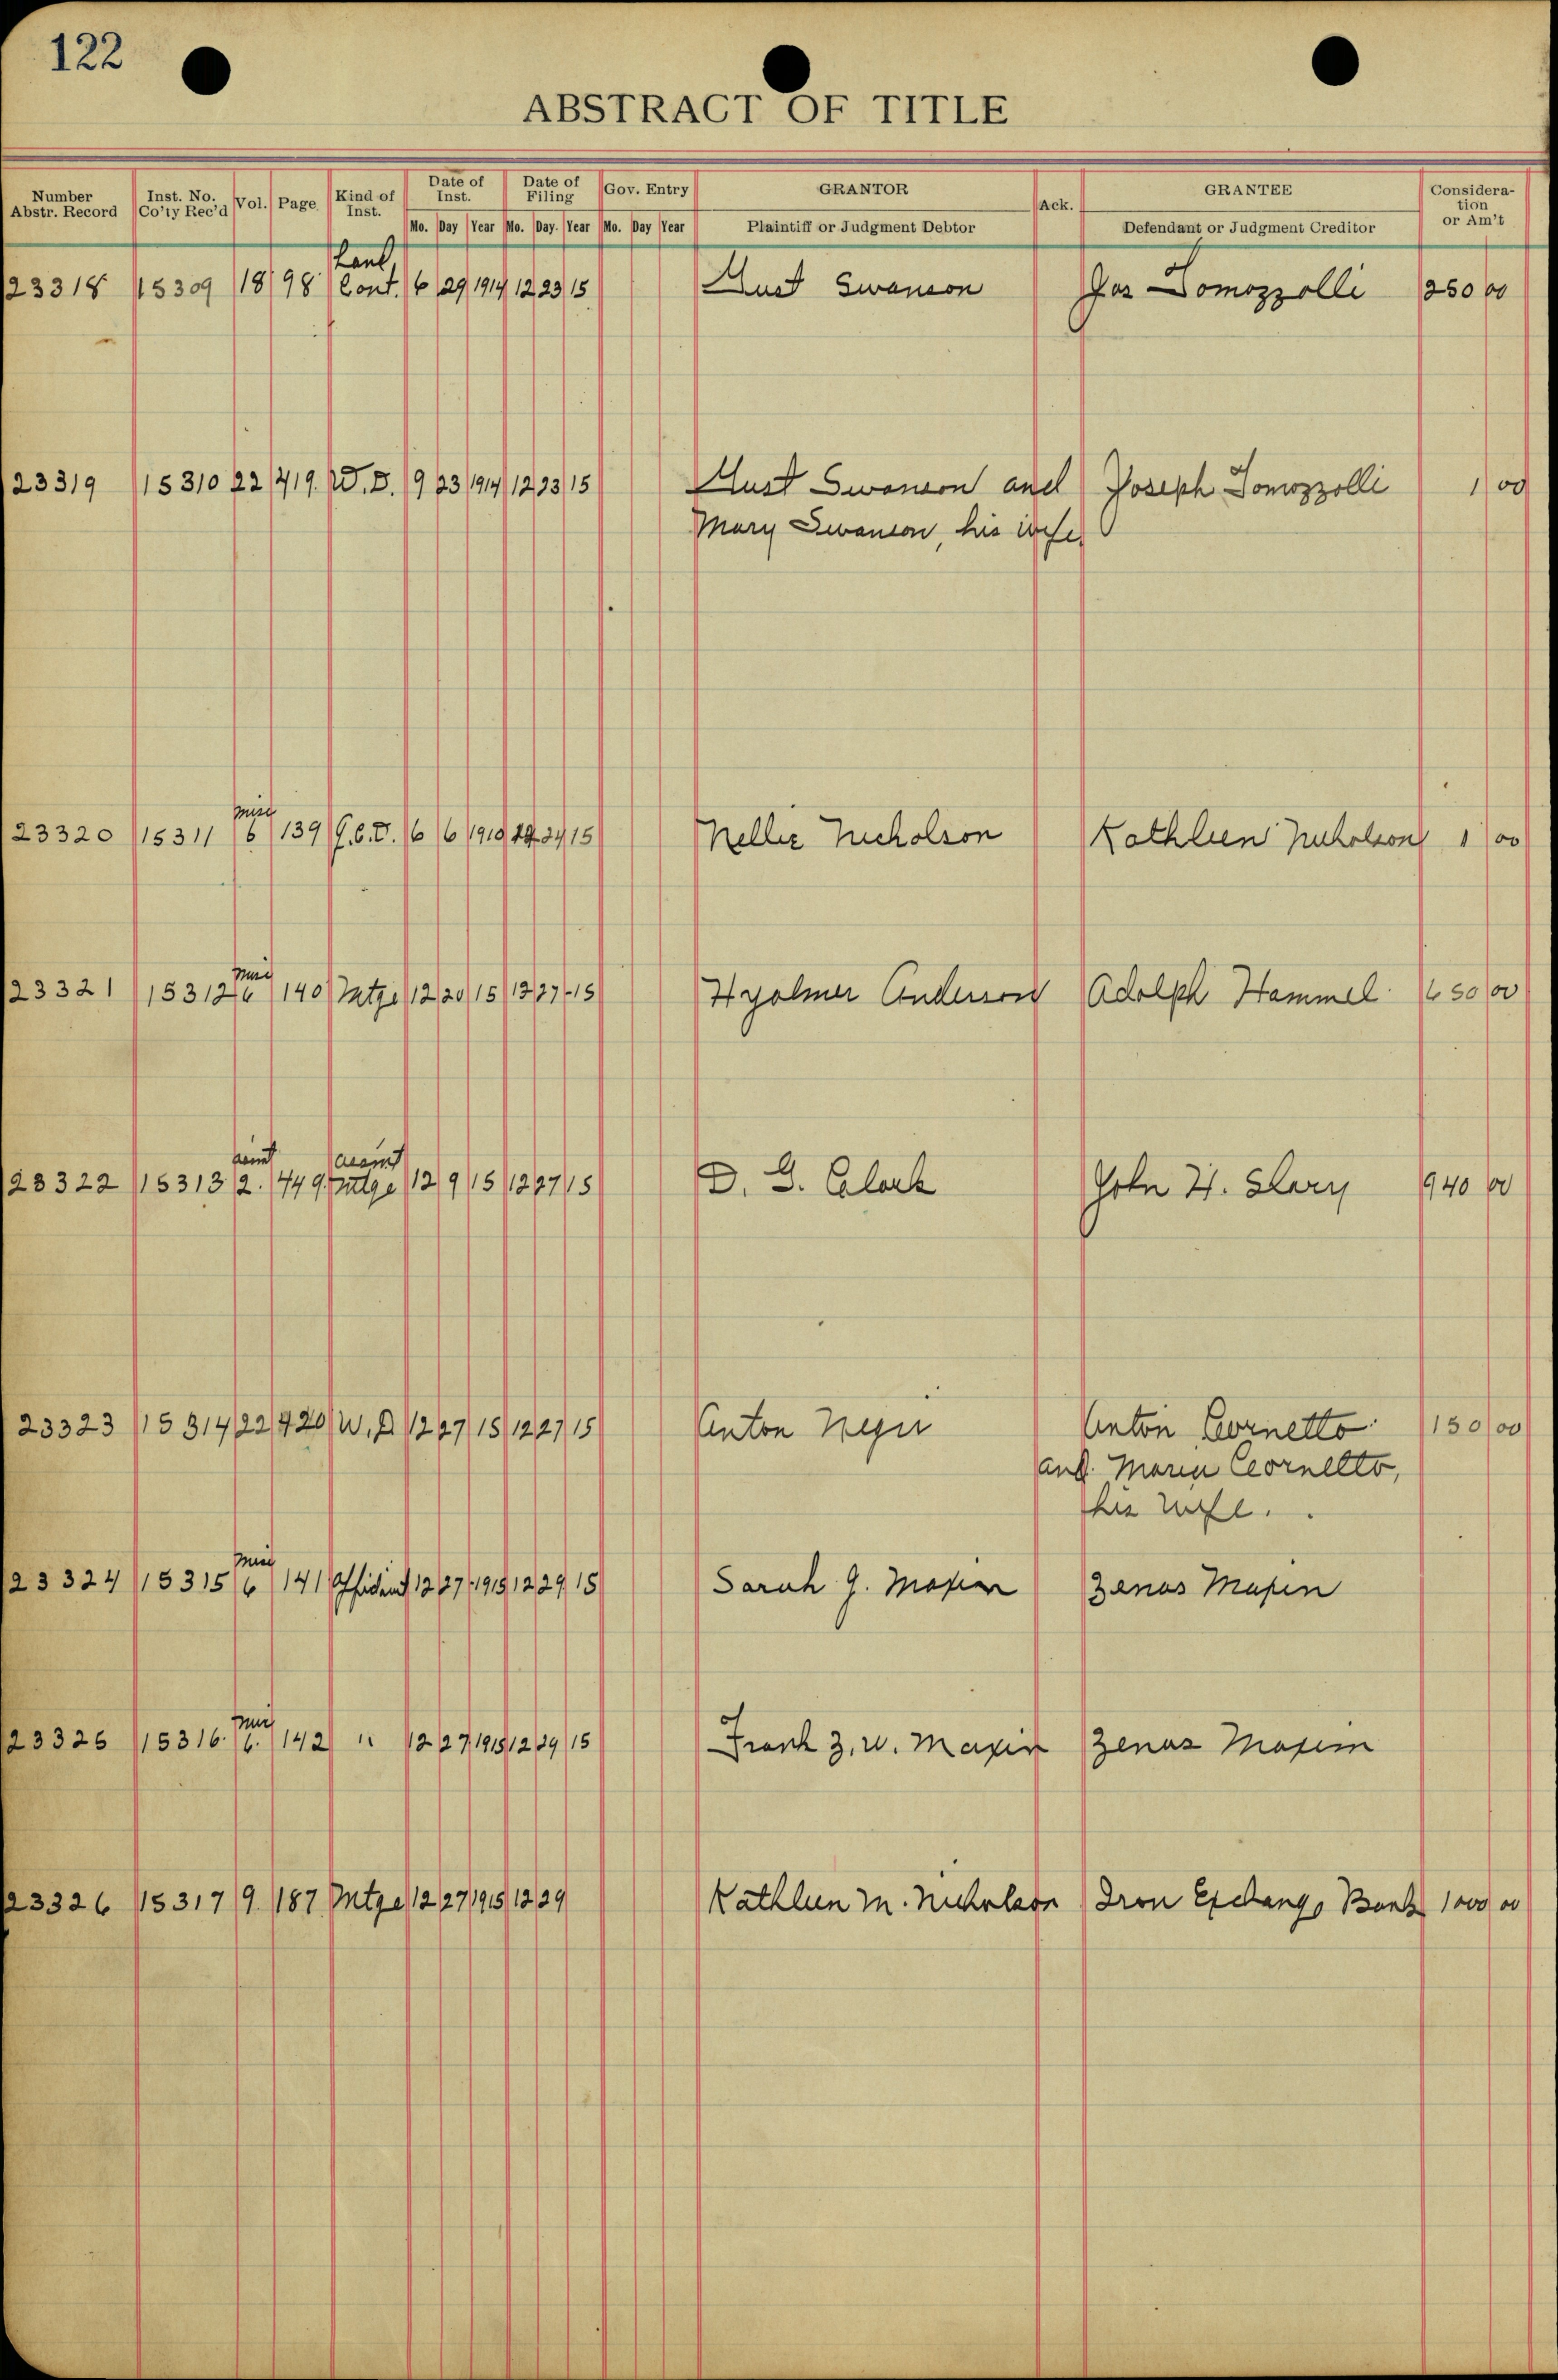 122
ABSTRACT OF TITLE
Number Abstr. Record Inst. No. Co'ty Rec'd Vol. Page Kind of Inst. Date of Inst. Date of Filing Gov. Entry GRANTOR Ack. GRANTEE Consideration or Am't
Mo. Day Year Mo. Day. Year Mo. Day Year Plaintiff or Judgment Debtor Defendant or Judgment Creditor
23318 15309 18 98 Cont. 6 29 1914 12 23 15 Gust Swanson Jos Tomozzolli 250 00
23319 15310 22 419. W.D. 9 23 1914 12 23 15 Gust Swanson and Joseph Tomozzolli 1 00
Mary Swanson, his wife
misc
23320 15311 6 139 Q.C.D. 6 6 1910 24 15 Nellie Nicholson Kathleen Nicholson 1 00
misc
23321 15312 6 140 Mtge 12 20 15 12 27 15 Hyalmer Anderson Adolph Hammel 650 00
asmt asmt
23322 15313 2. 449 Mtge 12 9 15 12 27 15 D. G. Clark John H. Slary 940 00
23323 15314 22 420 W.D 12 27 15 12 27 15 Anton Anton Cornetto 150 00
and. Maria Cornetto,
his wife.
misc
23324 15315 6 141 Affidavit 12 27 1915 12 29 15 Sarah J. Maxim Zenas Maxim
misc
23325 15316. 6. 142 " 12 27 1915 12 29 15 Frank Z. W. Maxim Zenas Maxim
23326 15317 9 187 Mtge 12 27 1915 12 29 Kathleen M. Nicholson Iron Exchange Bank 1000 00